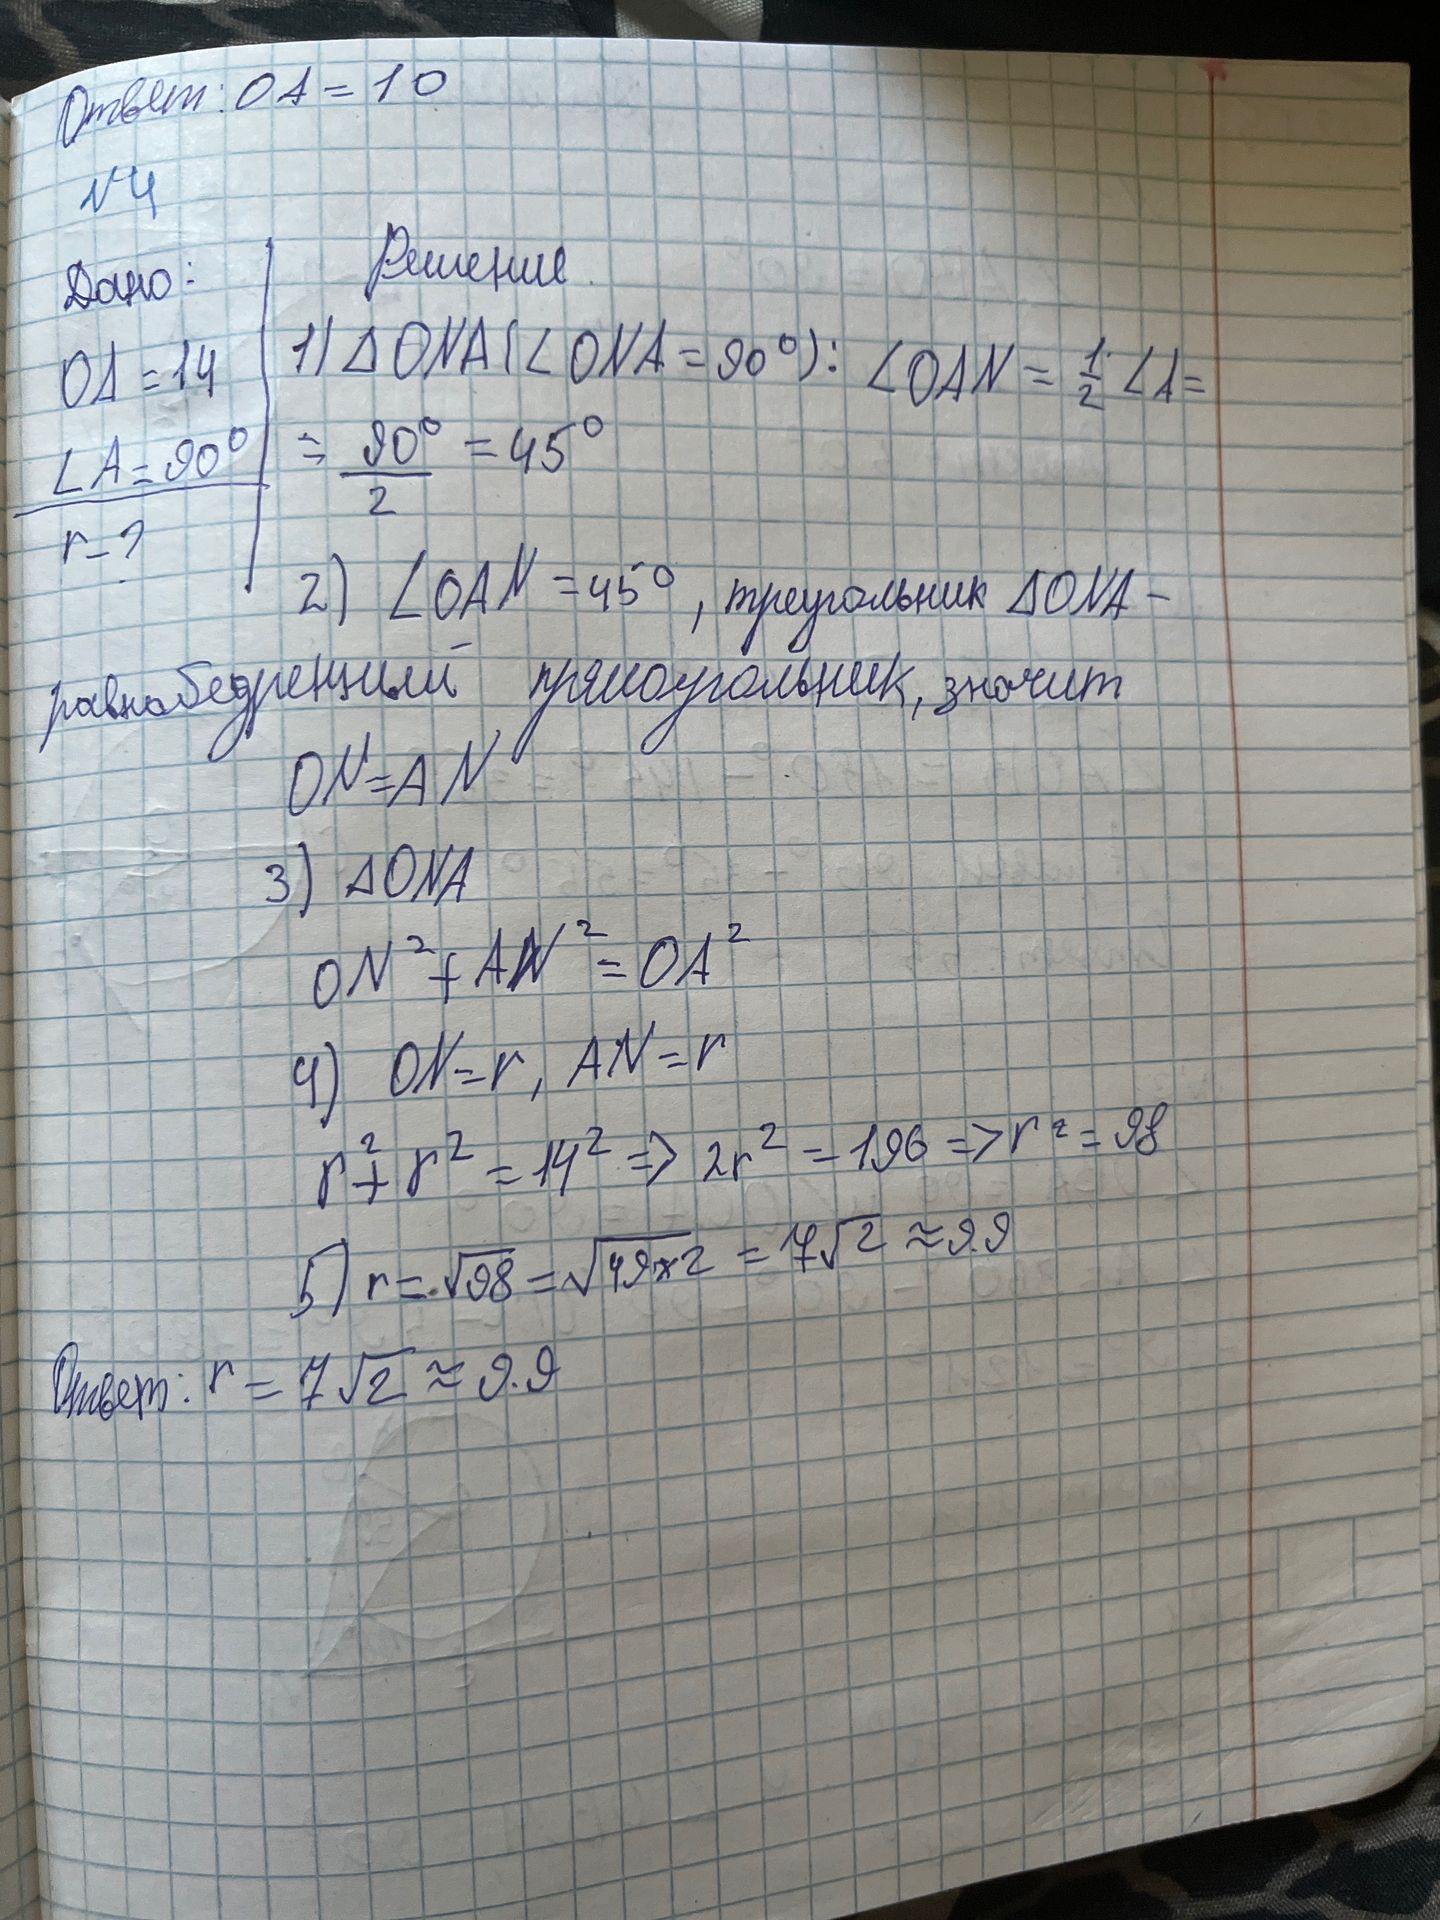 Ответ: OA = 10
N4
Дано:
Решение
OA = 14
1) ΔONA (∠ONA = 90°): ∠OAN = 1/2 ∠A =
∠A = 90°
= 90°/2 = 45°
r - ?
2) ∠OAN = 45°, треугольник ΔONA -
равнобедренный прямоугольник, значит
ON = AN
3) ΔONA
ON² + AN² = OA²
4) ON = r, AN = r
r² + r² = 14² => 2r² = 196 => r² = 98
5) r = √98 = √49×2 = 7√2 ≈ 9.9
Ответ: r = 7√2 ≈ 9.9